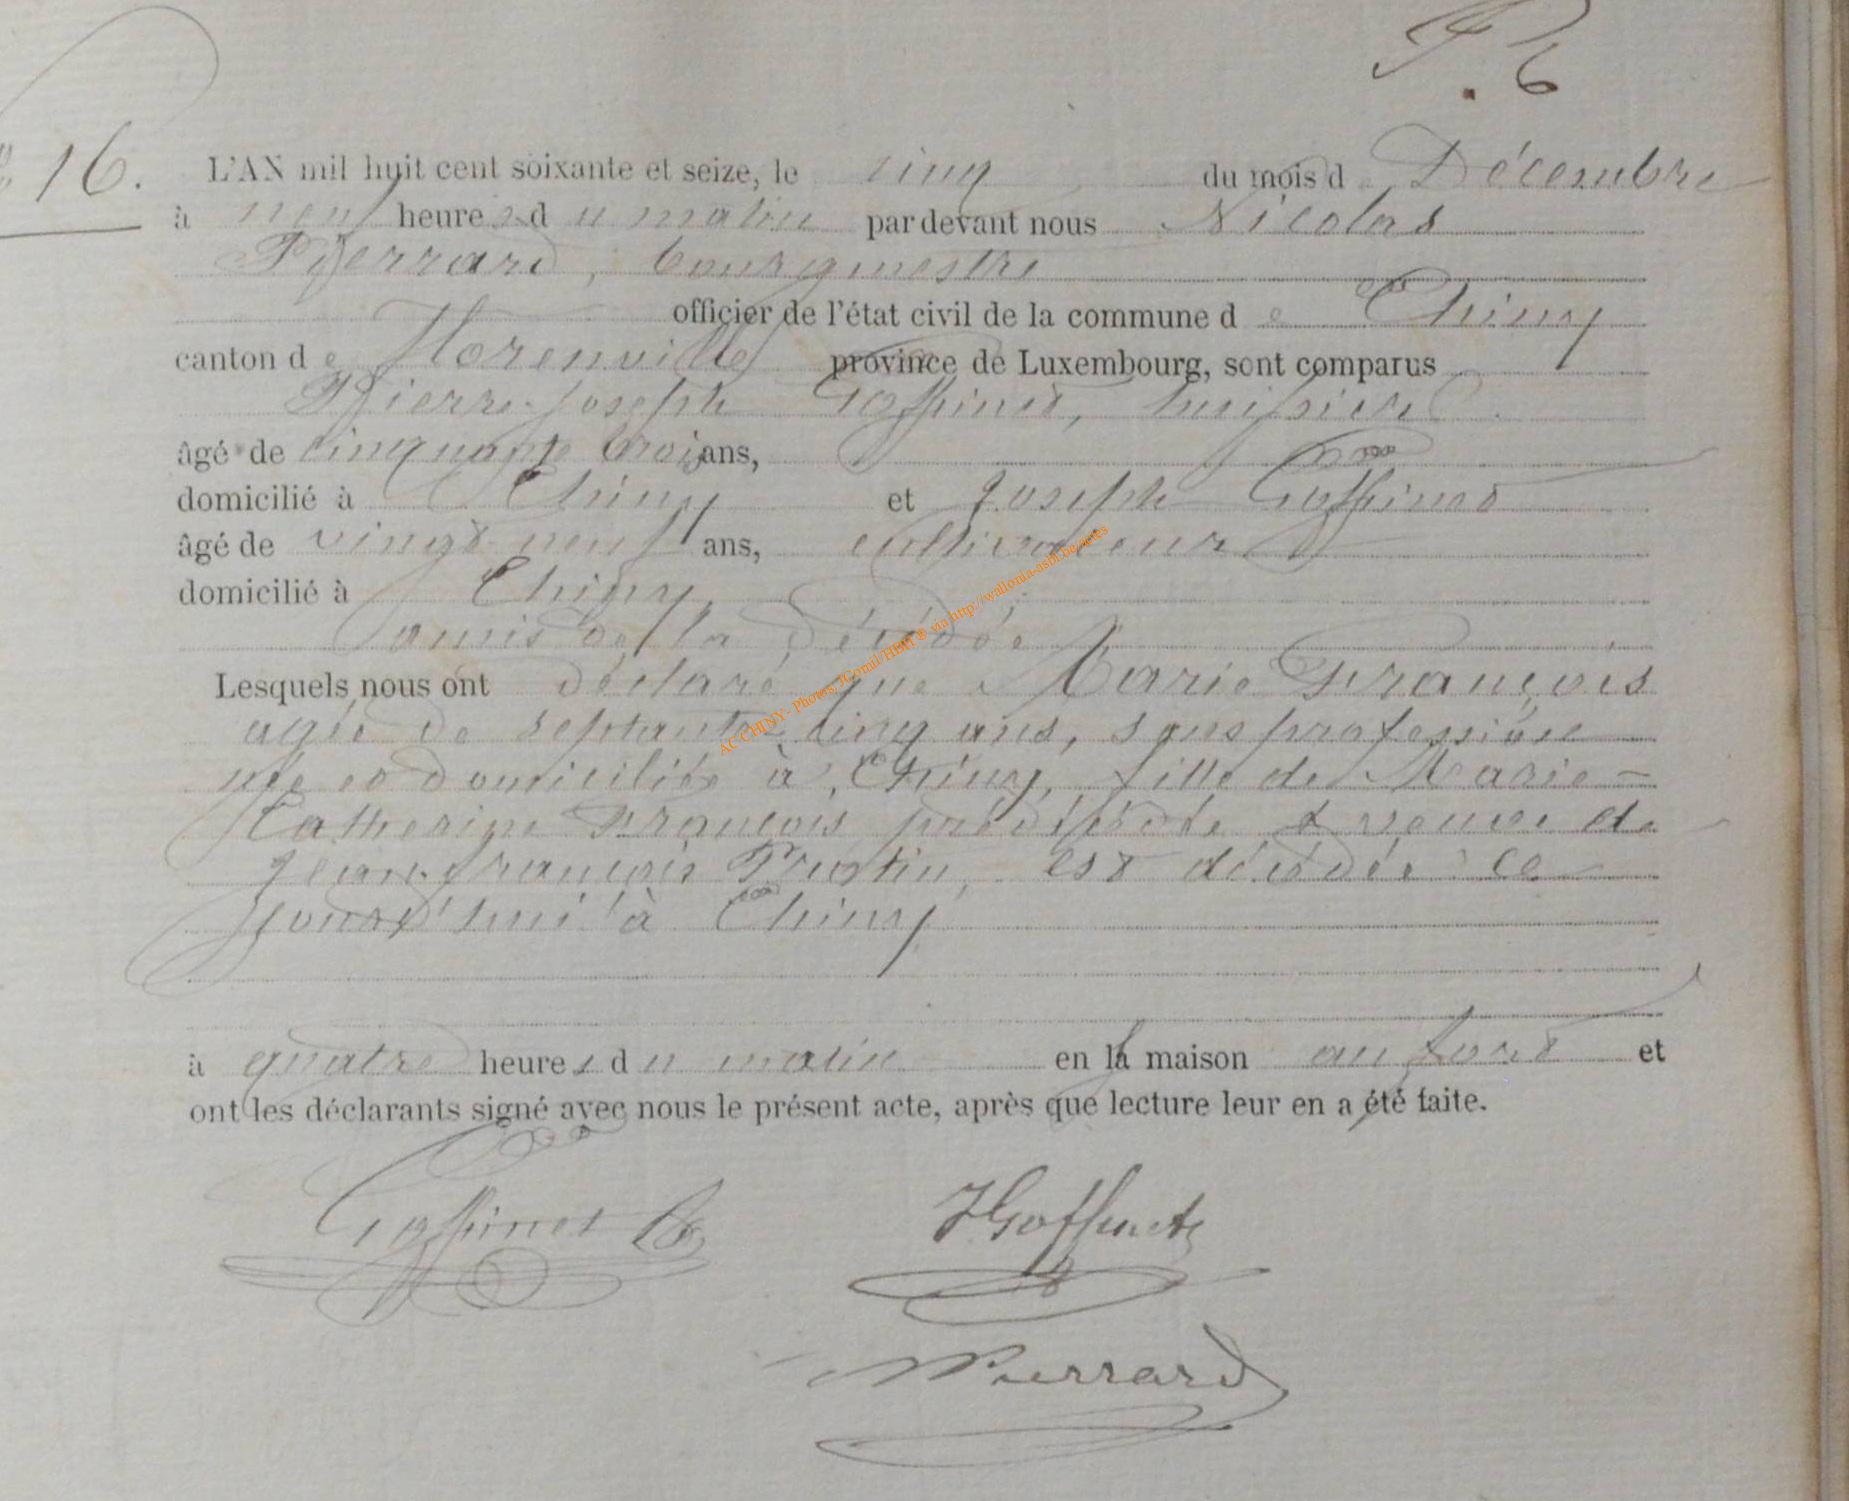 N° 16.
L'AN mil huit cent soixante et seize, le cinq du mois d Décembre
à neuf heures du matin par devant nous Nicolas
Pierrard, bourgmestre
officier de l'état civil de la commune de Chiny
canton de Florenville province de Luxembourg, sont comparus
Pierre-Joseph Goffinet, huissier
âgé de cinquante trois ans,
domicilié à Chiny et Joseph Goffinet
âgé de vingt-neuf ans, cultivateur
domicilié à Chiny,
amis de la décédée
Lesquels nous ont déclaré que Marie François
agée de septante cinq ans, sans profession
née et domiciliée à Chiny, fille de Marie-
Catherine François prédécédée & veuve de
Jean-françois Protin, est décédée ce
jourd'hui à Chiny
à quatre heures du matin en la maison au et
ont les déclarants signé avec nous le présent acte, après que lecture leur en a été faite.
Goffinet JGoffinet
NPierrard
AC CHINY - Photos JComil/HBH ® via http://wallonia-asbl.be/actes